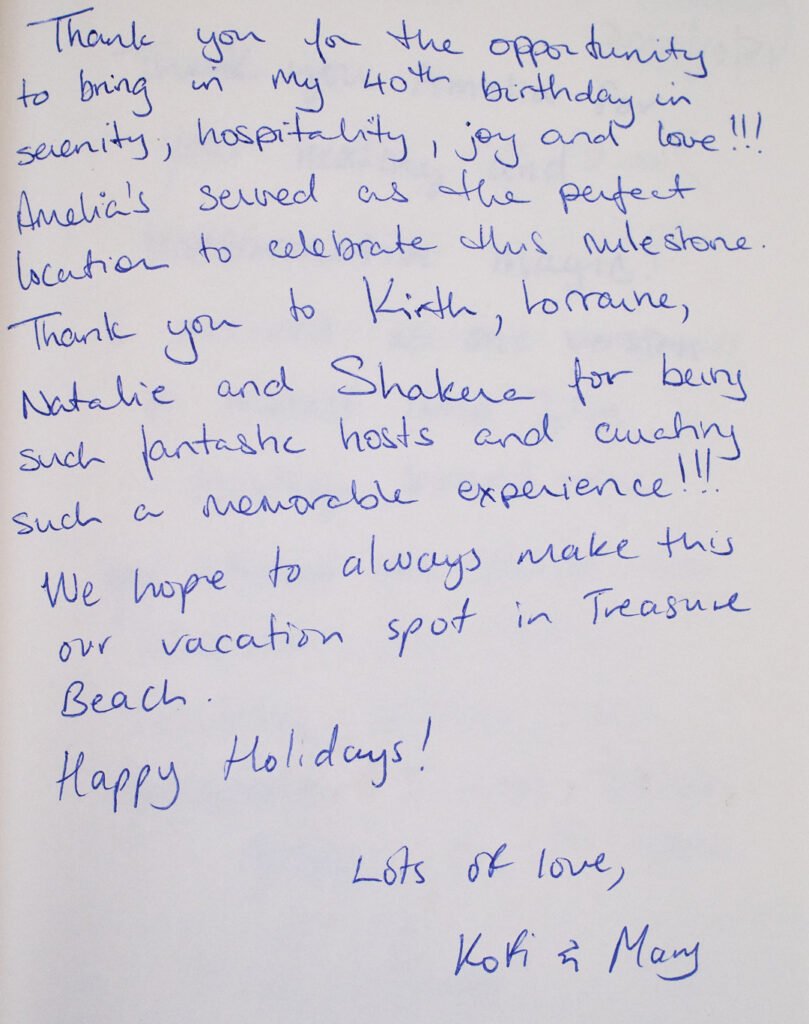 Thank you for the opportunity
to bring in my 40th birthday in
serenity, hospitality, joy and love!!!
Amelia's served as the perfect
location to celebrate this milestone.
Thank you to Kirth, Lorraine,
Natalie and Shakera for being
such fantastic hosts and creating
such a memorable experience!!!
We hope to always make this
our vacation spot in Treasure
Beach.
Happy Holidays!
Lots of love,
Kofi & Mary